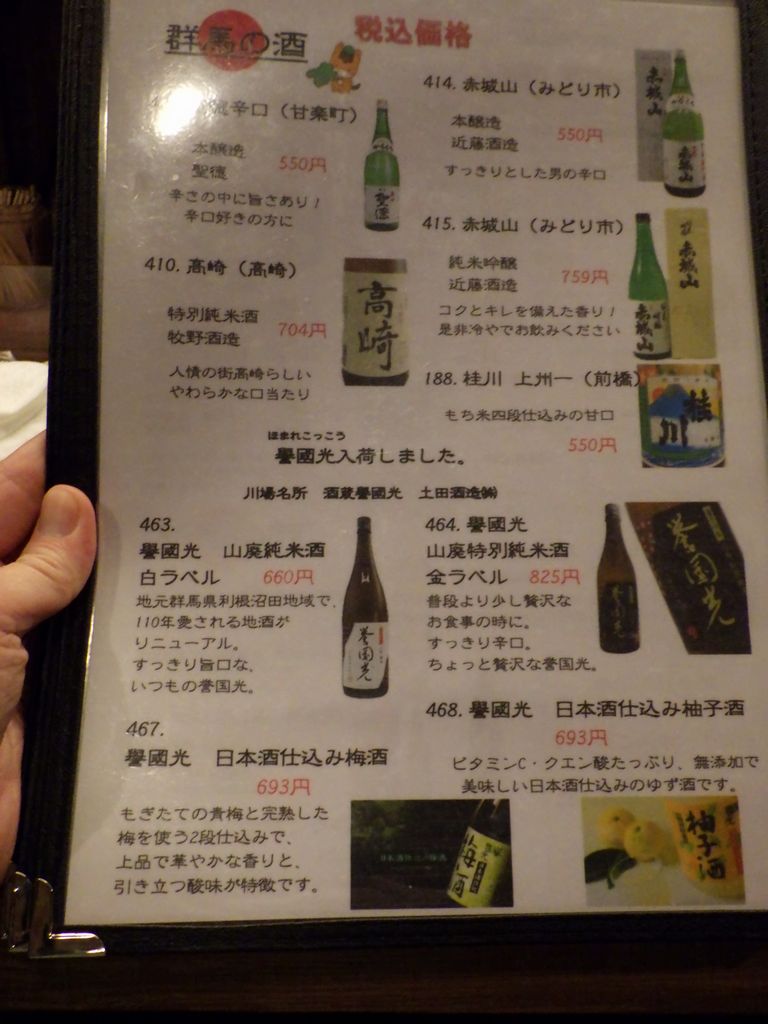 群馬の酒
税込価格
辛口（甘楽町）
本醸造
聖徳
550円
辛さの中に旨さあり！
辛口好きの方に
聖徳
414. 赤城山（みどり市）
本醸造
近藤酒造
550円
すっきりとした男の辛口
赤城山
赤城山
410. 高崎（高崎）
特別純米酒
牧野酒造
704円
人情の街高崎らしい
やわらかな口当たり
高崎
415. 赤城山（みどり市）
純米吟醸
近藤酒造
759円
コクとキレを備えた香り！
是非冷やでお飲みください
赤城山
赤城山
188. 桂川 上州一（前橋）
もち米四段仕込みの甘口
550円
桂川
ほまれこっこう
譽國光入荷しました。
川場名所 酒蔵譽國光 土田酒造㈱
463.
譽國光 山廃純米酒
白ラベル 660円
地元群馬県利根沼田地域で、
110年愛される地酒が
リニューアル。
すっきり旨口な、
いつもの誉国光。
誉国光
464. 譽國光
山廃特別純米酒
金ラベル 825円
普段より少し贅沢な
お食事の時に。
すっきり辛口。
ちょっと贅沢な誉国光。
誉国光
467.
譽國光 日本酒仕込み梅酒
693円
もぎたての青梅と完熟した
梅を使う2段仕込みで、
上品で華やかな香りと、
引き立つ酸味が特徴です。
梅酒
468. 譽國光 日本酒仕込み柚子酒
693円
ビタミンC・クエン酸たっぷり、無添加で
美味しい日本酒仕込みのゆず酒です。
柚子酒